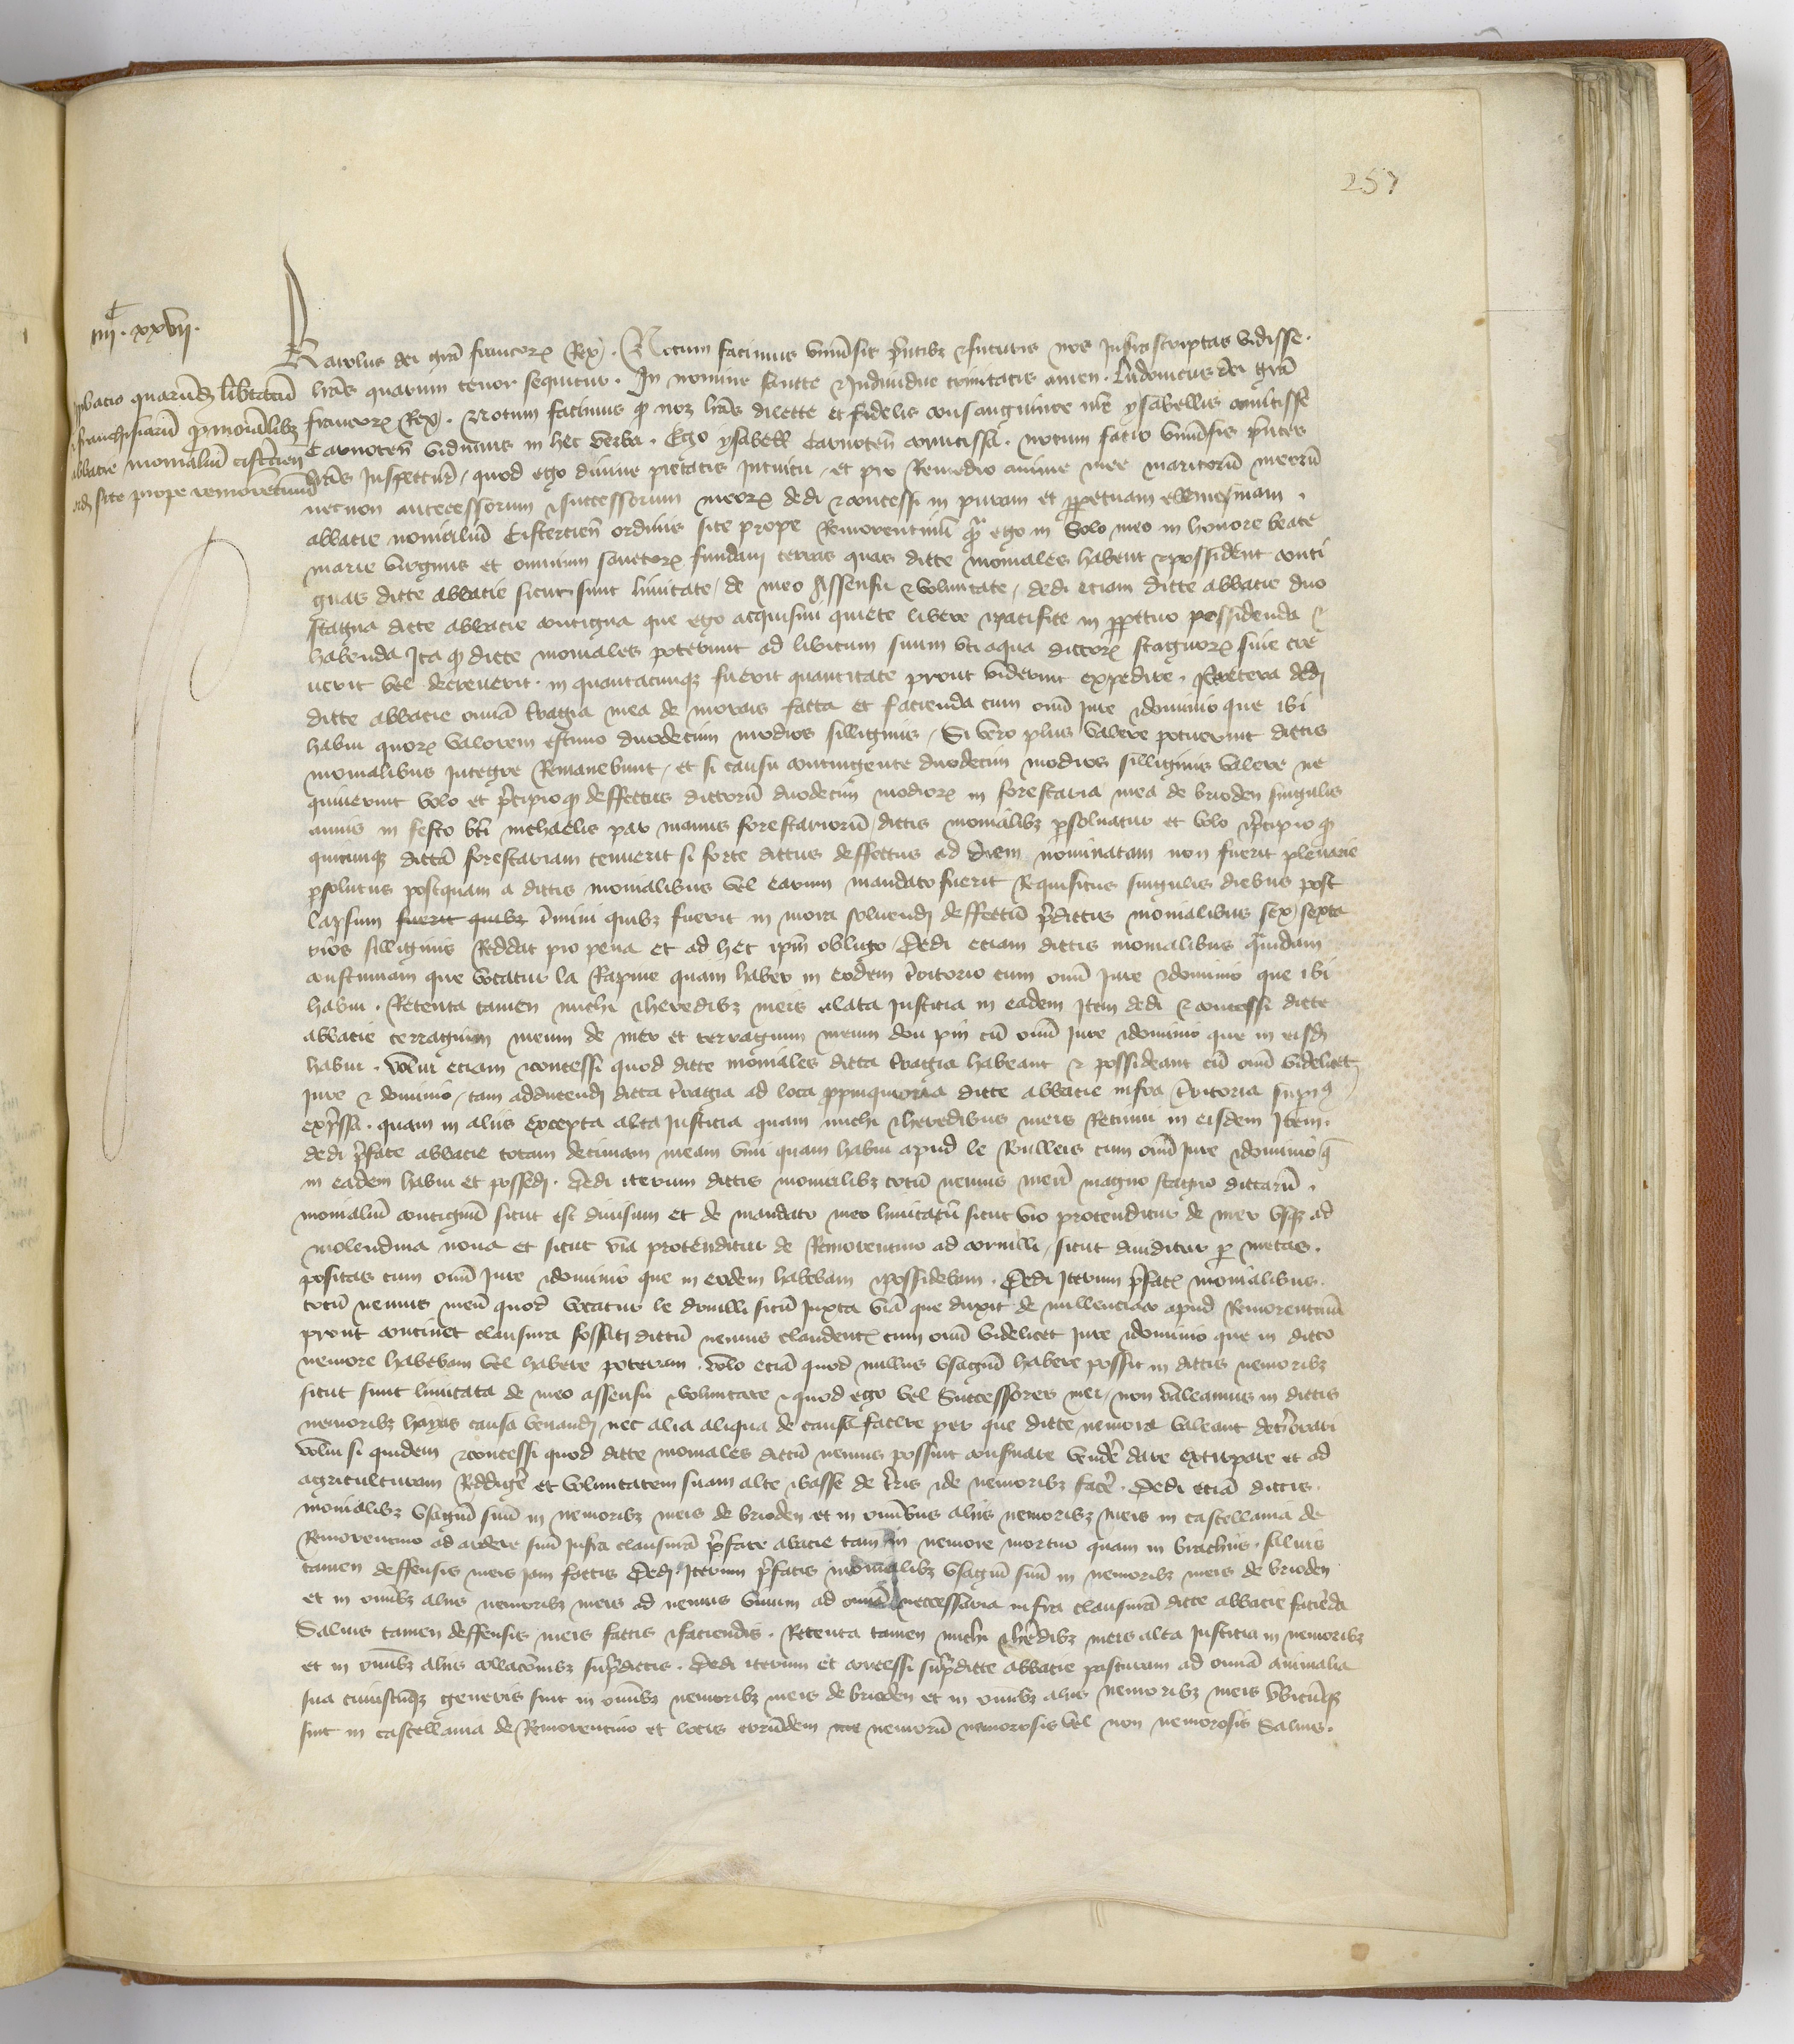 257
iiii c. xxvii.
Karolus dei grã francorꝝ Rex. Notum facimus vniũsis p̃ntibꝫ ⁊ futuris nos infrascriptas vidisse
lrãs quarum tenor sequitur. In nomine sancte ⁊ Indiuidue trinitatis amen. Ludouicus dei grã
francorꝝ Rex. Notum facimus ꝙ nos lrãs dilecte et fidelis consanguinee nrẽ ysabellis comitisse
Carnoteñ vidimus in hec verba. Ego ysabell Carnoteñ comitissa. notum facio vniũsis p̃ntes
lrãs Inspecturis, quod ego diuine pietatis Intuitu, et pro Remedio anime mee maritorũ meorũ
necnon antecessorum ⁊ successorum meorꝝ dedi ⁊ concessi in puram et ꝑpetuam elemosinam.
abbatie monialiũ Cistercieñ ordinis site prope Remorentinũ quã ego in Solo meo in honore beate
marie virginis et omnium sanctorꝝ fundaui terras quas dicte moniales habent ⁊ possident conti
guas dicte abbatie sicut sunt limitate, de meo Assensu ⁊ voluntate, dedi etiam dicte abbatie duo
stagna dicte abbatie contigua que ego acquisiui quiete libere ⁊ pacifice in ꝑpetuo possidenda ⁊
habenda Ita ꝙ dicte moniales poterunt ad libitum suum vti aqua dictorꝝ stagnorꝝ siue cre
uerit vel decreuerit. in quantacunqꝫ fuerit quantitate prout viderint expedire. Preterea dedi
dicte abbatie omĩa terragia mea de morais facta et facienda cum omĩ Jure ⁊ dominio que ibi
habui quorꝝ valorem estimo duodecim modios silliginis, Si vero plus valere potuerint dictis
monialibus Integre Remanebunt, et si causu contingente duodecim modios silliginis valere ne
quiuerint volo et p̃cipio ꝙ deffectus dictorũ duodecim modiorꝝ in forestaria mea de brioden singulis
annis in festo bti michaelis par manus forestariorũ, dictis monialibꝫ ꝑsoluatur et volo ⁊ p̃cipio ꝙ
quicunqꝫ dictã forestariam tenuerit si forte dictus deffectus ad diem nominatam non fuerit plenarie
ꝑsolutus postquam a dictis monialibus vel earum mandato fuerit Requisitus singulis diebus post
lapsum fuerit quibꝫ t̃mini quibꝫ fuerit in mora soluendi deffectũ p̃dictis monialibus sex sexta
rios silliginis Reddat pro pena et ad hec ipm̃ obligo, Dedi etiam dictis monialibus quandam
costumam que vocatur la Rapine quam habeo in eodem t̃ritorio cum omĩ Jure ⁊ dominio que ibi
habui. Retenta tamen michi ⁊ heredibꝫ meis alata Justicia in eadem Item dedi ⁊ concessi dicte
abbatie terragium meum de mer et terragium meum dou pin cũ omĩ Jure ⁊ dominio que in eisdẽ
habui. volui etiam ⁊ concessi quod dicte moniales dicta t̃ragia habeant ⁊ possideant cũ omĩ videlicet
Jure ⁊ dominio, tam adducendi dicta t̃ragia ad loca ꝓpinquiora dicte abbatie infra t̃ritoria supiꝰ
exp̃ssa. quam in aliis excepta alta Justicia quam michi ⁊ heredibus meis Retinui in eisdem Item.
dedi p̃fate abbatie totam decimam meam vini quam habui apud le Rulleis cum omĩ Jure ⁊ dominio q̃
in eadem habui et possedi. Dedi iterum dictis monialibꝫ totũ nemus meũ magno stagno dictarũ.
monialiũ contiguũ sicut est diuisum et de mandato meo limitatũ sicut via protenditur de mer vsqꝫ ad
molendina noua et sicut via protenditur de Remorentino ad cornilli, sicut diuiditur ꝑ metas.
positas cum omĩ Jure ⁊ dominio que in eodem habebam ⁊ possidebam. Dedi Iterum p̃fatis monialibus.
totũ nemus meũ quod vocatur le druilli sitũ Juxta viã que duxit de millenciaco apud Remorentinũ
prout continet clausura fossati dictũ nemus claudentis cum omĩ videlicet Jure ⁊ dominio que in dicto
nemore habebam vel habere poteram. volo etiã quod nullus vsagiũ habere possit in dictis nemoribꝫ
sicut sunt limitata de meo assensu ⁊ voluntate ⁊ quod ego vel Successores mei, non valeamus in dictis
nemoribꝫ hayas causa venandi nec alia aliqua de causa facere per que dicte nemora valeant det̃iorari
volui si quidem ⁊ concessi quod dicte moniales dictũ nemus possint consumare vendẽ dare extirpare et ad
agriculturam Reddigẽ et voluntatem suam alte ⁊ basse de t̃ris ⁊ de nemoribꝫ facẽ. Dedi etiã dictis.
monialibꝫ vsagiũ suũ in nemoribꝫ meis de brioden et in omĩbus aliis nemoribꝫ meis in castellania de
Remorentino ad ardere suũ Infra clausurã p̃fate abacie tam in nemore mortuo quam in brachiis. saluis
tamen deffensis meis iam factis Dedi. Iterum p̃fatis monialibꝫ vsagiũ suũ in nemoribꝫ meis de brioden
et in omĩbꝫ aliis nemoribꝫ meis ad nemus viuum ad omĩa neccessaria infra clausurã dicte abbatie faciẽda
Saluis tamen deffensis meis factis ⁊ faciendis. Retenta tamen michi ⁊ hẽdibꝫ meis alta Justicia in nemoribꝫ
et in omĩbꝫ aliis collacõnibꝫ sup̃dictis. Dedi iterum et concessi sup̃dicte abbatie pasturam ad omĩa animalia
sua cuiuscũqꝫ generis sint in omĩbꝫ nemoribꝫ meis de brioden et in omĩbꝫ aliis nemoribꝫ meis vbicũqꝫ
sint in castellania de Remorentino et locis eorũdem nemorũ nemorosis vel non nemorosis Saluis.
quarũdã libtatũ
franchisiarũ ꝓ monialibꝫ
abbatie monialiũ cistercien
ordĩ site prope remorentinũ